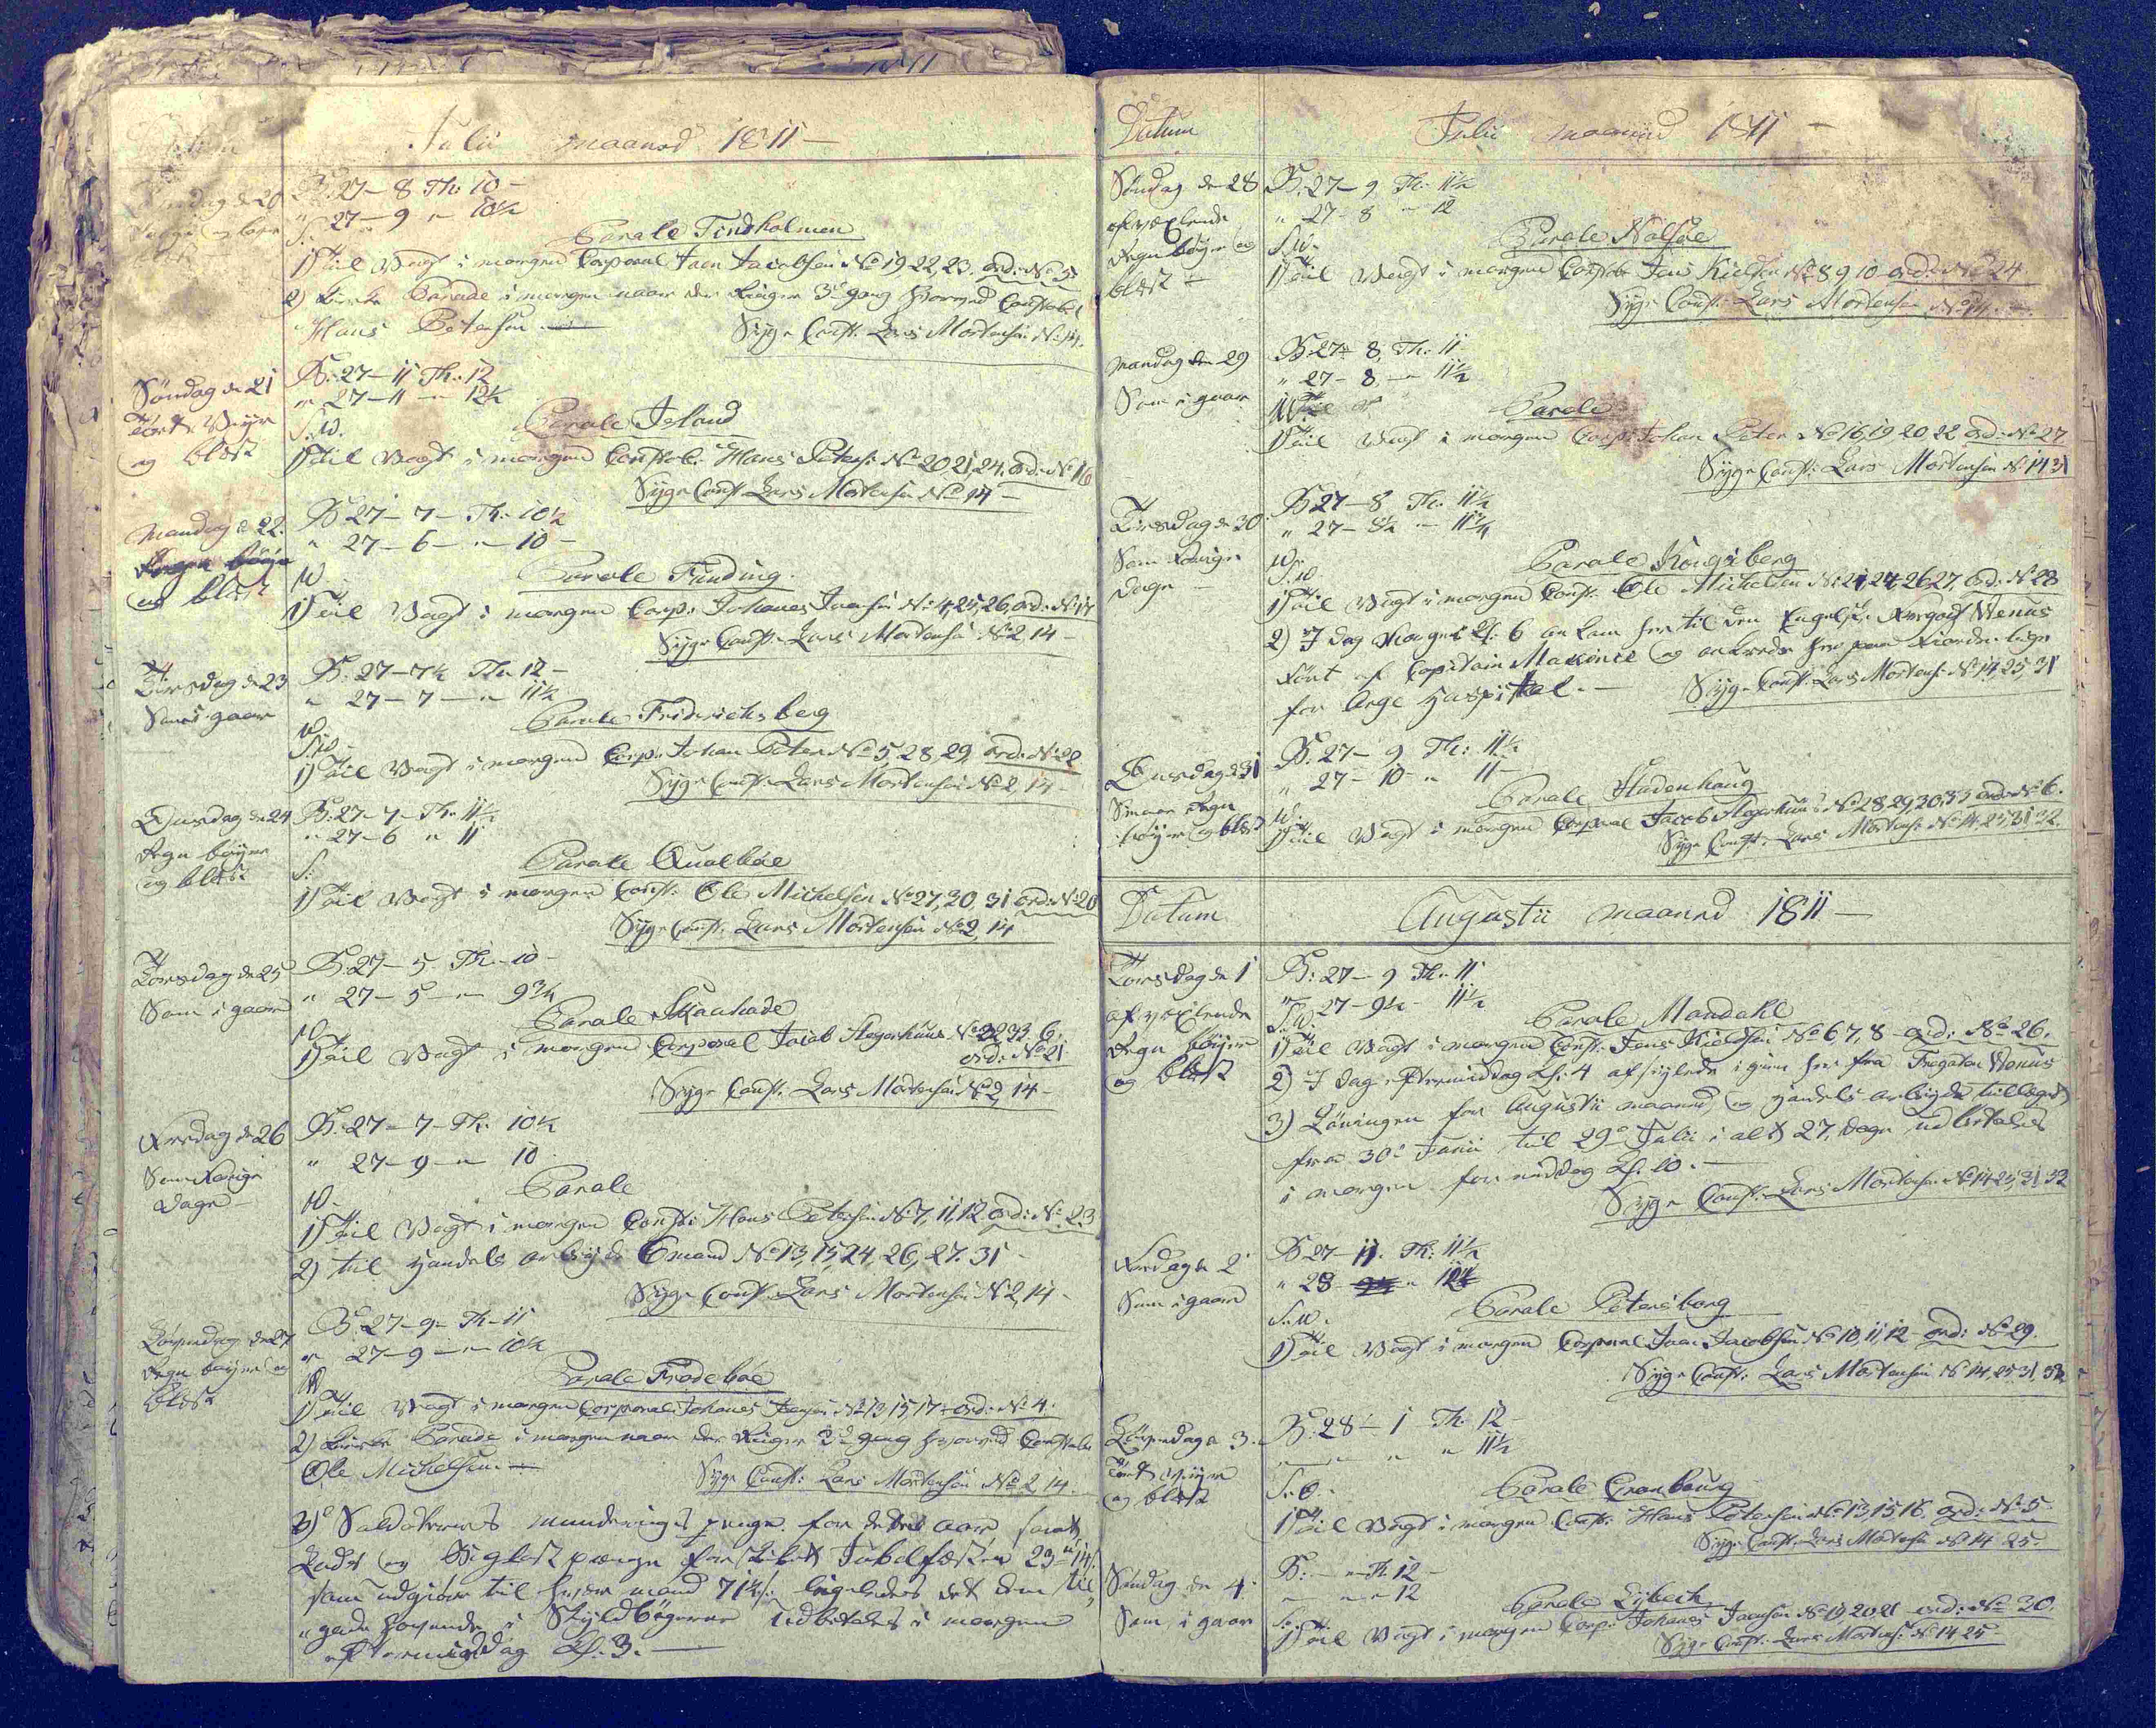 Julii maaned 1811 —
B: 27 – 8 Th: 10 –
" 27 – 9 " 10½
Parole Tindholmen
1) Til Vagt i morgen Corporal Joen Jacobsen No 19 22, 23. ord: No 31
2) Kirke Parade i morgen naar der Ringer 3de gang hvorved Constabel
Hans Petersen. —
Syge Const: Lars Mortensen No 14.
Søndag de 21
Tørt Veyr
og blæst
B: 27 – 11 Th: 12
" 27 – 11 – " 12½
S: W.
Parole Island
1) Til Vagt i morgen Constab: Hans Peters: No 20 21, 24. ord: No 16
Syge Const Lars Mortensen No 14 –
Mandag d 22.
Regn böye
og blæst
B 27 – 7 – Th: 10½
" 27 – 6 – " – 10 –
W
Parole Funding.
1) Til Vagt i morgen Corp: Johanes Joensen No 4, 25, 26, ord: No 17
Syge Const: Lars Mortensen No 2 14 –
Tirsdag de 23
Som i gaar
B: 27 – 7½ Th: 12 –
" 27 – 7 – " 11½
Parole Friderichsberg
S: W
1) Til Vagt i morgen Corp: Johan Peter No 5, 28, 29, ord: No 22
Syge Const: Lars Mortensen No 2, 14 –
Onsdag de 24
Regn böyer
og blæst
B: 27 – 7 – Th: 11½
" 27 – 6 " 11
S:
Parole Qualböe
1) Til Vagt i morgen Const: Ole Michelsen No 27, 30, 31 ord: No 20
Syge Const: Lars Mortensen No 2, 14
Torsdag de 25
Som i gaar
B: 27 – 5 Th: 10 –
" 27 – 5 – " 9¾
Parole Skaalvade
W
1) Til Vagt i morgen Corporal Jacob Hegerhuus No 32 33 6.
ord: No 21
Syge Const: Lars Mortensen No 2, 14 –
Fredag de 26
Som Forige
Dage –
B: 27 – 7 – Th: 10½
" 27 – 9 – " 10
Parole
W –
1) Til Vagt i morgen Const: Hans Petersen No 7, 11, 12 ord: No 23
2) til Handels arbeyde 6 mand No 13, 15, 24, 26, 27. 31 –
Syge Const: Lars Mortensen No 2, 14 –
Löverdag de 27
Regn böyer og
blæst
B: 27 – 9 – Th – 11
" 27 – 9 – " – 10½
W
Parole Frodeböe
1) Til Vagt i morgen Corporal Johanes Joensen No 13 15 17 – ord: No 4.
2) Kirke Parade i morgen naar der Ringer 3de gang hvorved Constabel
Ole Michelsen. —
Syge Const: Lars Mortensen No 2 14.
3) Soldaternes munderings penge for dette aar samt
som udgiör til hver mand 71½ s: ligeledes det dem til
"gode havende i Skyldbögerne udbetales i morgen
eftermiddag Kl. 3. —
Datum
Julii maaned 1811 –
Søndag de 28
afvexlende
Regn böyer og
blæst –
B: 27 – 9 Th: 11½
" 27 – 8 – 12
S: W.
Parole Nolsöe
1) Til Vagt i morgen Constab Jens Kielsen No 8 9, 10 – ord: No 24
Syge Const: Lars Mortensen No 14. –
Mandag den 29
Som i gaar
B: 27 – 8, Th: 11 –
" 27 – 8, – " 11½
Parole
1) Til Vagt i morgen Corp: Johan Peter No 16, 19 20, 22 ord: No 27
Syge Const: Lars Mortensen No 14, 31
Tirsdag d 30
Som Forige
Dage –
B 27 – 8 Th: 11½
" 27 – 8½ – 11¾
S: W
Parole Kongsberg
1) Til Vagt i morgen Const: Ole Michelsen No 21, 24, 26, 27, ord: No 28
2) I dag Morges Kl: 6 ankom her til den Engelske Fregat Wenus
fört af Capitain Makince og ankrede her paa Fiorden lige
for Arge Hospital. —
Syge Const: Lars Mortens: No 14, 25, 31
Onsdag d 31
Smaae Regn
böyer og blæst
B: 27 – 9 Th: 11½
" 27 – 10 – " 11 –
W.
Parole Hadenhaug
1) Til Vagt i morgen Corporal Jacob Hegerhuus No 28, 29, 30, 33 ord: No 6.
Syge Const: Lars Mortens: No 14, 25, 31 32
Datum
Augustii maaned 1811 –
Torsdag de 1
afvexlende
Regn böyer
og blæst
B: 27 – 9 Th: 11
" 27 – 9½ – 11½
S: W.
Parole Mandahl
1) Til Vagt i morgen Const: Jens Kieldsen No 6 7, 8 – ord: No 26.
2) I dag eftermiddag Kl: 4 afseylede igien her fra Fregaten Wenus
3) Löningen for Augustii maaned og Handels arbeyde tillæged
fra 30te Junii til 29de Julii i alt 27, dage udbetales
i morgen formiddag Kl. 10. —
Syge Const: Lars Mortensen No 14 25, 31, 32
Fredag d 2
Som i gaar
B 27 – 11. Th: 11½
" 28 – " 12½
S: W.
Parole Petersborg
1) Til Vagt i morgen Corporal Joen Jacobsen No 10, 11, 12 – ord: No 29.
Syge Const: Lars Mortensen No 14, 25 31, 32
Löverdag d 3.
Tört Veyr
og blæst
B: 28 – 1 Th: 12 –
" – " – " " 11½
S: O.
Parole Cronbourg
1) Til Vagt i morgen Const: Hans Petersen No 13, 15 16. ord: No 5.
Syge Const: Lars Mortensen No 14 25.
Søndag de 4
Som i gaar
B: – " – Th: 12 –
" – " – " 12
S:
Parole Lybech
1) Til Vagt i morgen Corp: Johanes Joensen No 19 20 21 ord: No 30.
Syge Const: Lars Mortens: No 14 25 –